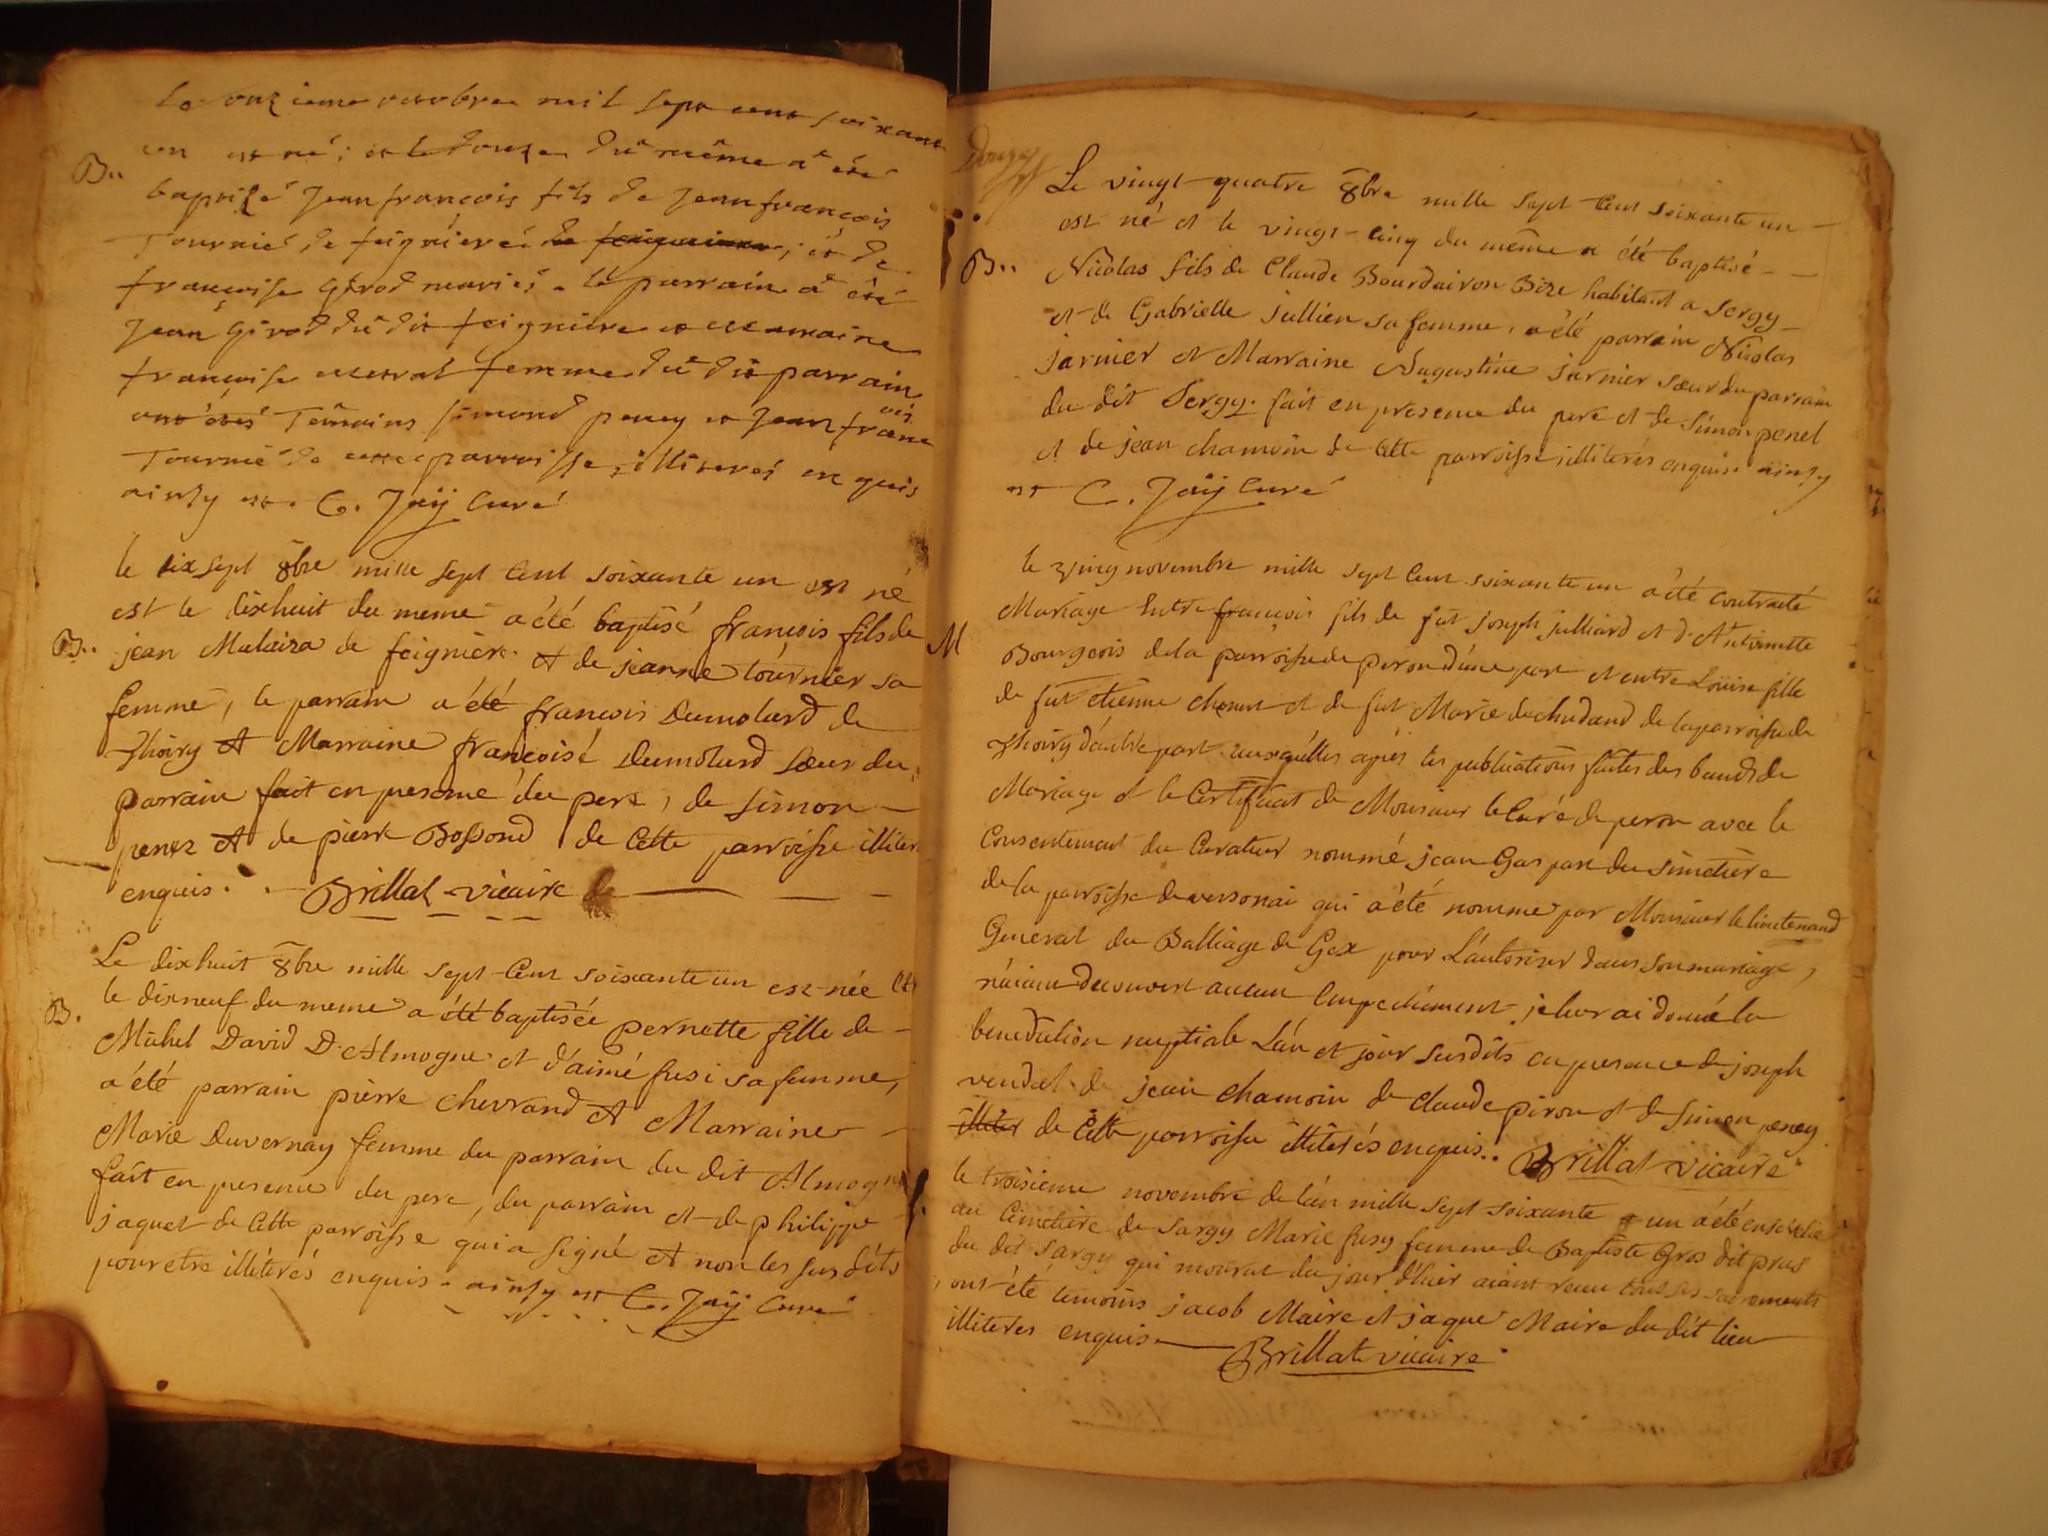 Le onzieme octobre mil sept cent soixante
un est né; et le douze du même a été
B..
baptisé Jean françois fils de Jean françois
Tournier de feignieres de feigniere; et de
françoise Girod mariés. le parrain a été
Jean Girod du dit feigniere et marraine
françoise femme du dit parrain
ont étés Temoins Simond peney et Jean franc
ois
Tournié de cette parroisse, illiterés enquis
ainsy est. C. Jaÿ Curé
le dix sept 8bre mille sept cent soixante un est né
est le dixhuit du meme a été baptisé françois fils de
B..
jean Malaiza de feigniere. et de jeanne tournier sa
femme, le parrain a été françois Dumolard de
Thoiry et Marraine françoise Dumolard sœur du
parrain fait en presence du pere, de Simon
peney et de pierre Bossond de Cette parroisse illiter
enquis. Brillat vicaire
Le dixhuit 8bre mille sept Cent soixante un est née et
le dixneuf du meme a été baptisée pernette fille de
B.
Michel David D'Almogne et d'aimé fusi sa femme,
a été parrain pierre Chevrand et Marraine
Marie Duvernay femme du parrain du dit Almogne
fait en presence du pere, du parrain et de philippe
jaquet de Cette parroisse qui a signé et non les susdits
pour etre illiterés enquis. ainsy est C. Jaÿ Curé
Le vingt quatre 8bre mille sept Cent soixante un
est né et le vingt-cinq du même a été baptisé
B..
Nicolas fils de Claude Bourdairon Bize habitant a Sergy
et de Gabrielle jullien sa femme, a été parrain Nicolas
jarnier et Marraine Augustine jarnier sœur du parrain
du dit Sergy. fait en presence du pere et de Simon penel
et de jean chamoin de Cette parroisse illiterés enquis. ainsy
est C. Jaÿ Curé
le novembre mille sept Cent soixante un a été contracté
Mariage Entre françois fils de fut joseph julliard et d'Antoinette
M
Bourgeois de la parroisse de peron d'une part et entre Louise fille
de fut etienne et de fut Marie de la parroisse de
Thoiry d'autre part auxquelles après les publications faites des bands de
Mariage et le Certificat de Monsieur le Curé de peron avec le
Consentement du Curateur nommé jean Gaspard du Simetiere
de la parroisse de versonai qui a été nommé par Monsieur le lieutenand
General du Balliage de Gex pour L'autoriser dans son mariage,
n'aiant decouvert aucun Empechement je leur ai donné la
benediction nuptiale L'an et jour susdits en presence de joseph
vendel de jean chamoin de claude piron et de simon peney
illiter de Cette parroisse illiterés enquis.. Brillat vicaire
le troisieme novembre de l'an mille sept soixante et un a été ensevelie
au Cimetiere de Sargy Marie fusy femme de Baptiste Gros dit prus
du dit Sargy qui mourut du jour d'hier aiant receu tous ses sacrements
ont été temoins jacob Maire et jaque Maire du dit lieu
illiteres enquis Brillat vicaire